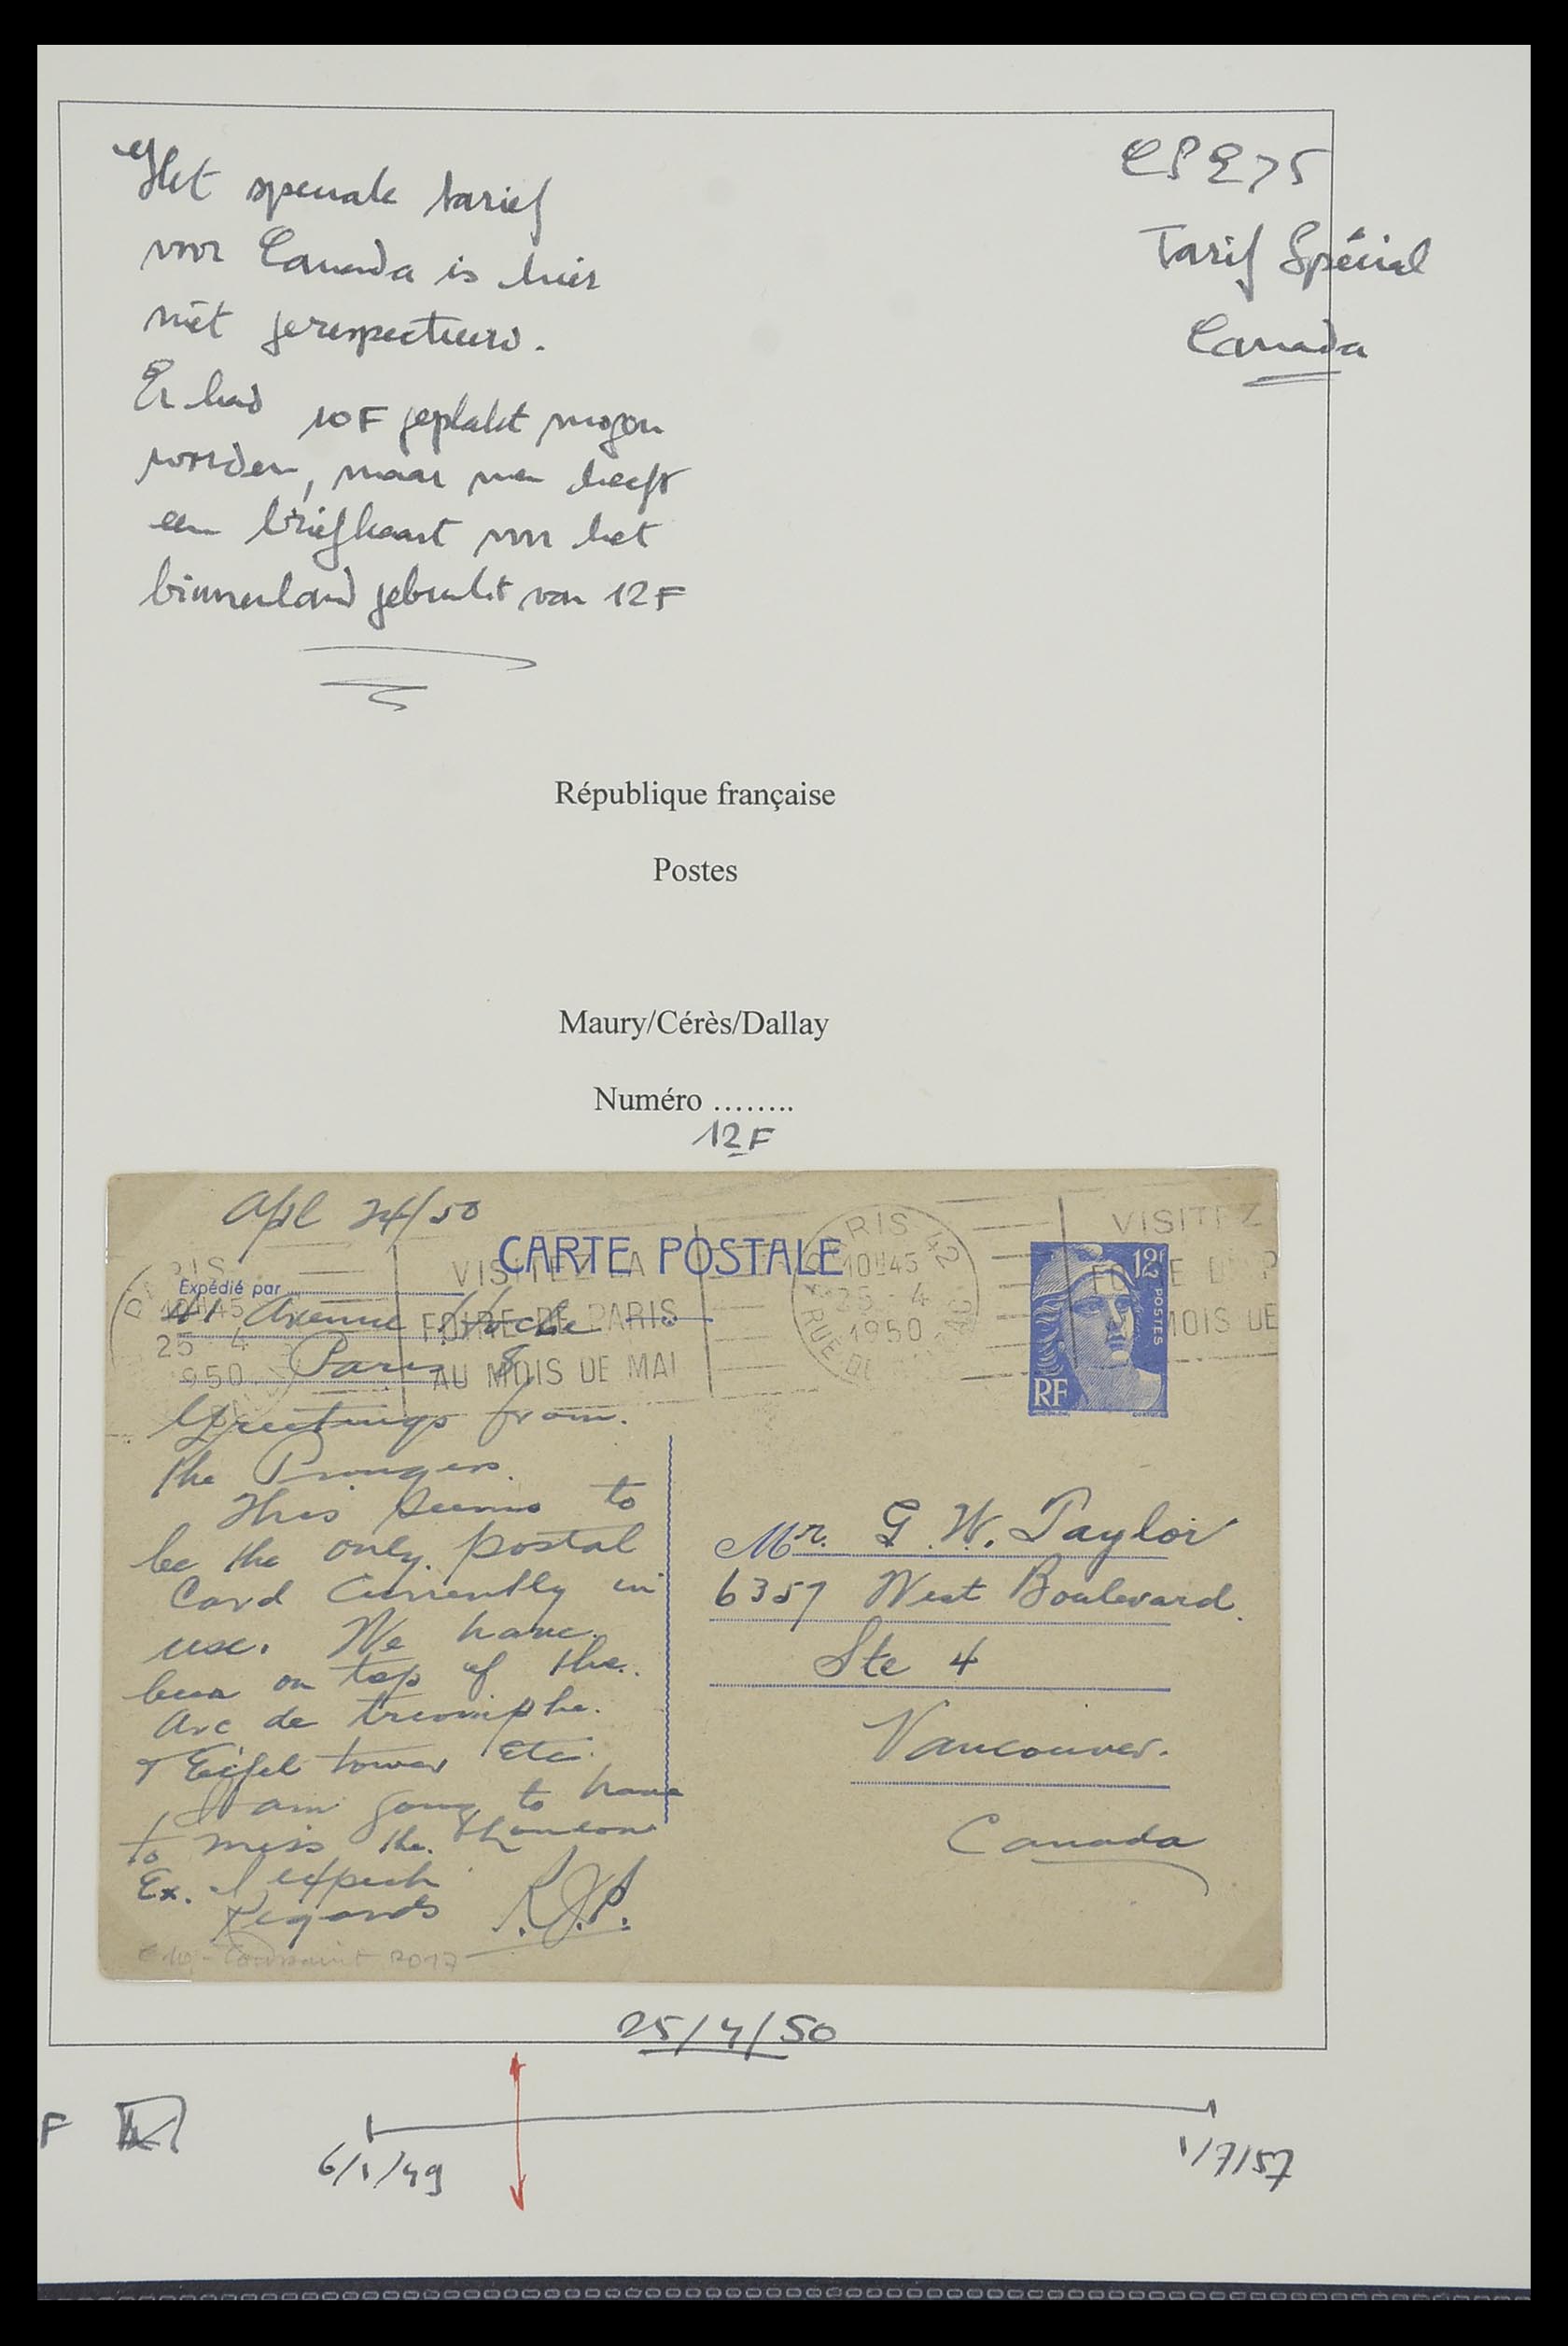 Het speciale tarief
voor Canada is hier
niet gerespecteerd.
Er had 10F geplakt mogen
worden, maar men heeft
een briefkaart voor het
binnenland gebruikt van 12F
Tarif Spécial
Canada
République française
Postes
Maury/Cérès/Dallay
Numéro ........
12F
Apl 24/50
CARTE POSTALE
Expédié par
Avenue Hoche
Paris 8
VISITEZ LA
FOIRE DE PARIS
AU MOIS DE MAI
10H45
25 - 4
1950
VISITEZ
MOIS DE
12F
POSTES
RF
Greetings from
the
This seems to
be the only postal
Card Currently in
use. We have
been on top of the
Arc de triomphe.
& Eiffel tower etc.
I am going to have
to miss the
Ex. I expect
Regards
R.J.P.
Mr. G. W. Taylor
6357 West Boulevard.
Ste 4
Vancouver.
Canada
Toussaint 2017
25/4/50
F
6/1/49
1/7/57